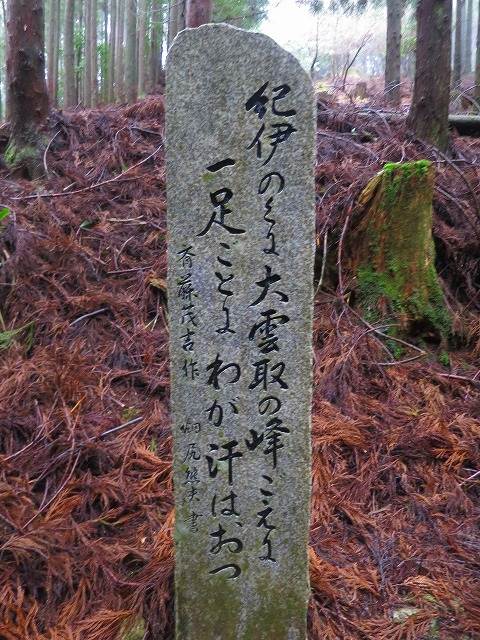 紀伊のくに大雲取の峰ごえに
一足ごとにわが汗はおつ
斎藤茂吉作 畑尻
書